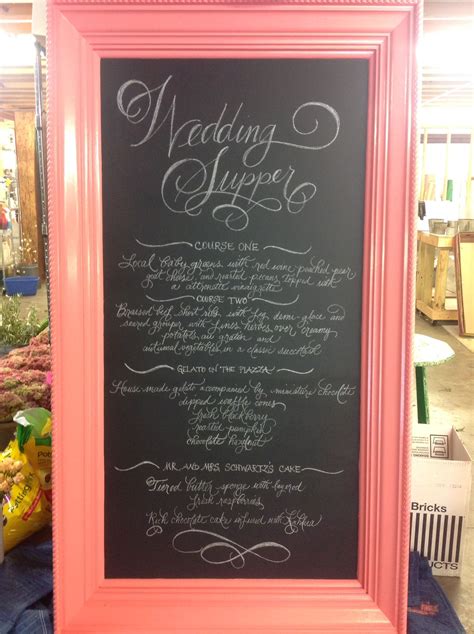 Wedding
Supper
COURSE ONE
Local baby greens with red wine poached pear
goat cheese and roasted pecans topped with
a vinaigrette
COURSE TWO
Braised beef short ribs with fig demi-glace and
seared grouper with fines herbes over creamy
potatoes au gratin and
autumnal vegetables in a classic succotash
GELATO IN THE PIAZZA
House made gelato accompanied by miniature chocolate
dipped waffle cones
fresh blackberry
roasted pumpkin
chocolate hazelnut
MR AND MRS. SCHWARTZ'S CAKE
Tiered butter sponge with layered
fresh raspberries
Rich chocolate cake infused with
Bricks